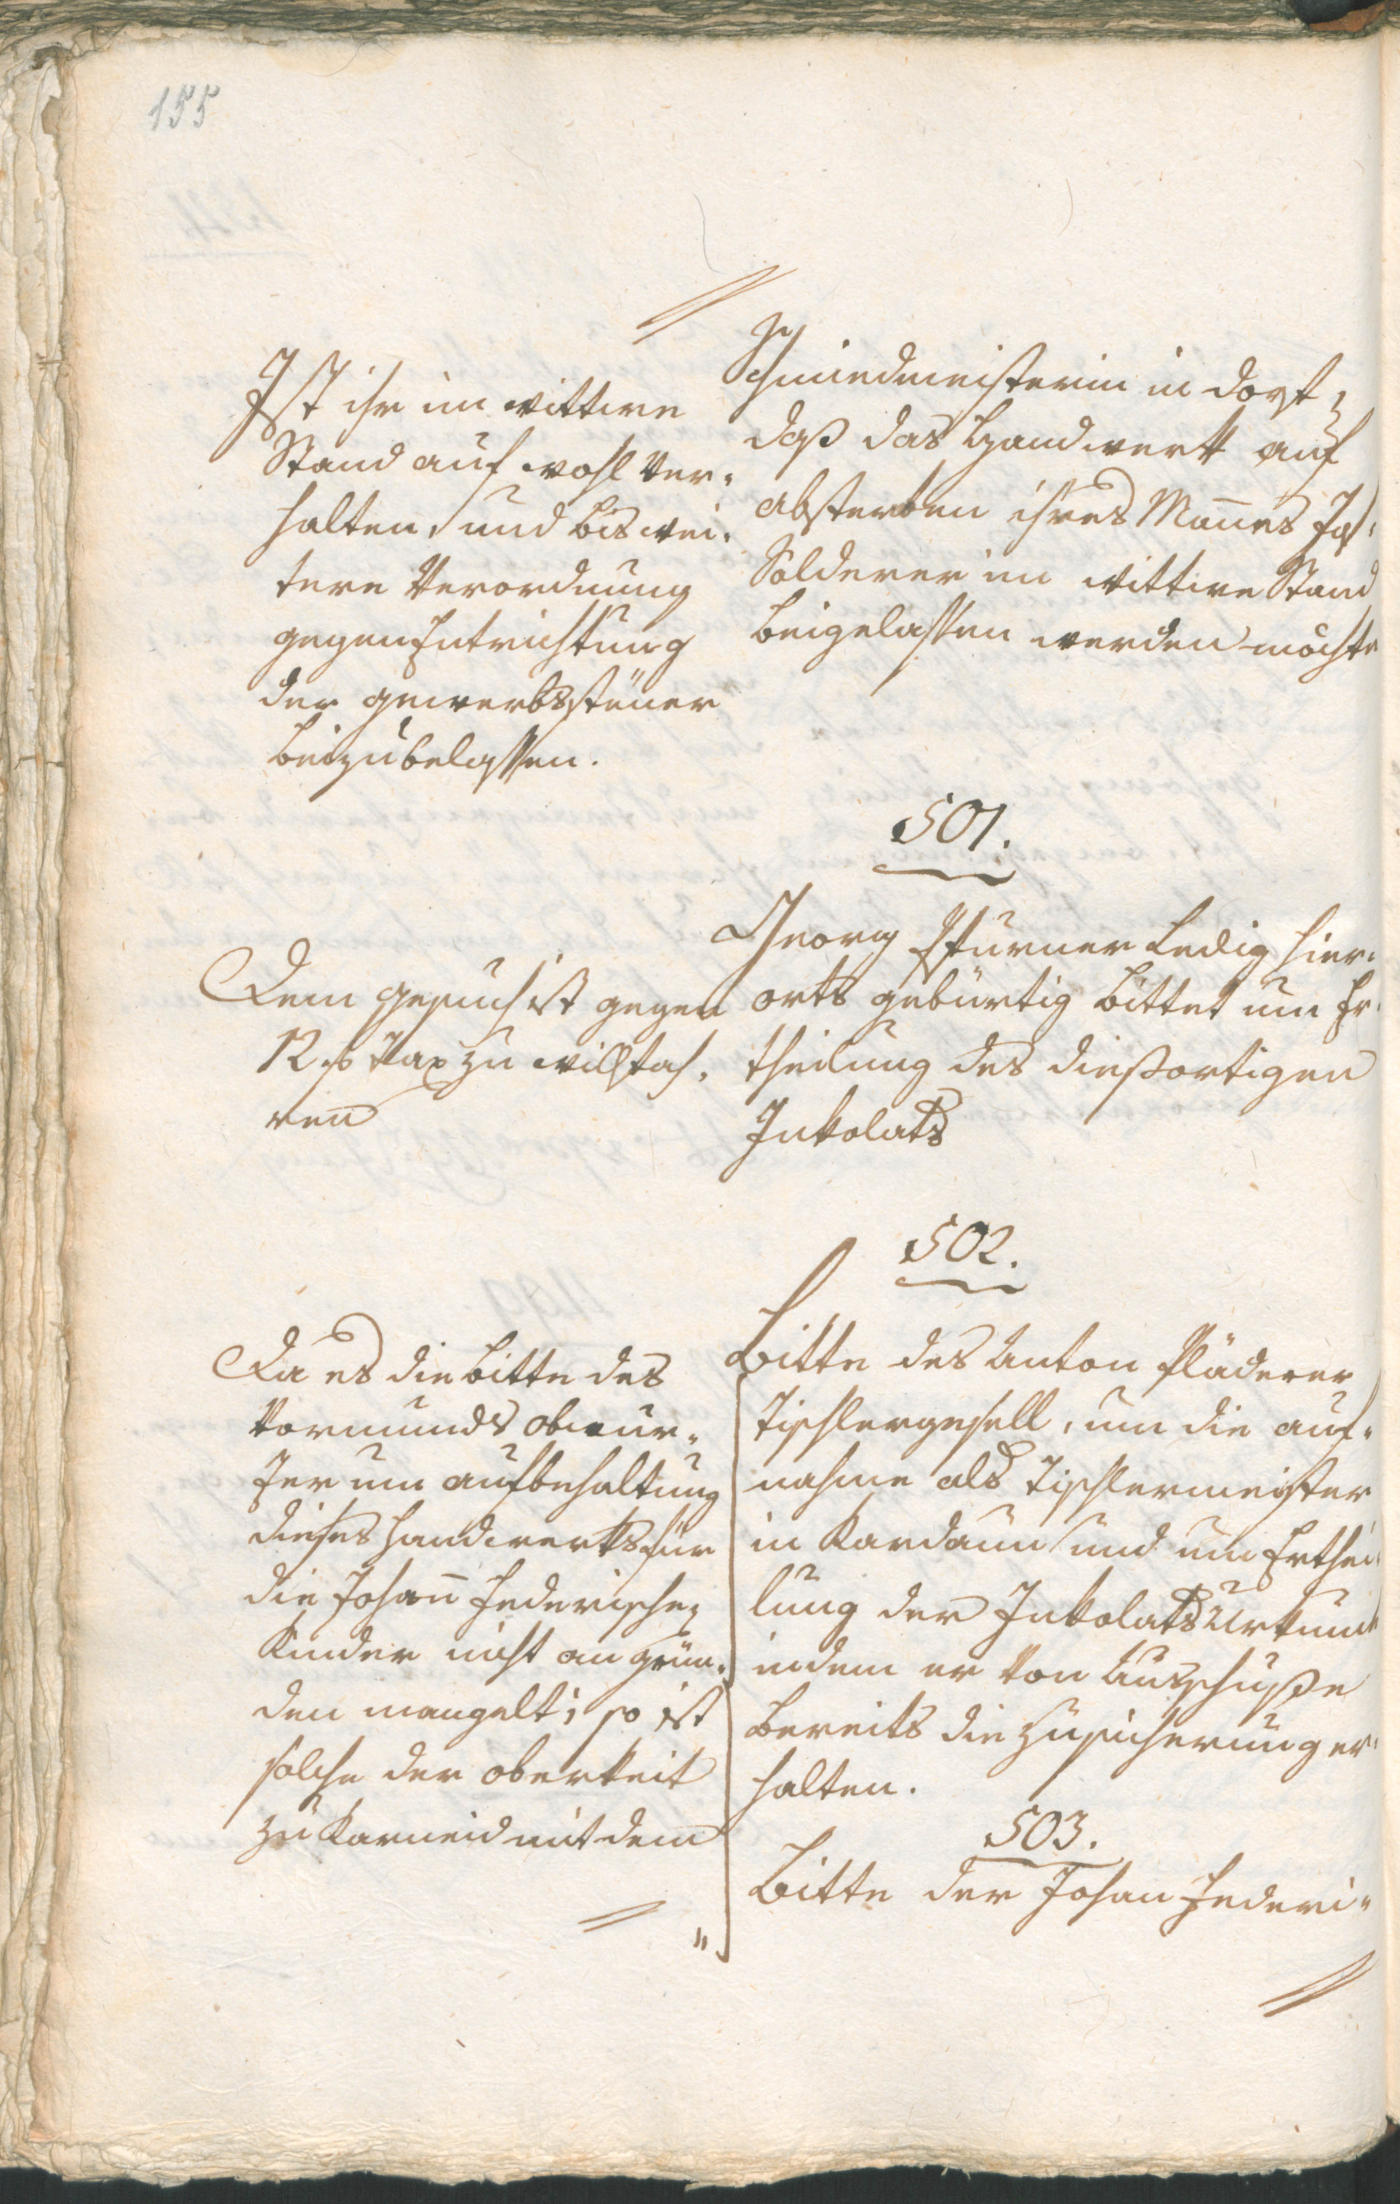 155
Ist ihr im wittwe
Stand auf wohl Ver-
halten, und bis wei-
tere Verordnung
gegen Entrichtung
der gewerbssteüer
beizubelassen.
Schmiedmeisterin in dort,
daß das Handwerk auf
absterben ihres Mañes Jos.
Solderer im wittwe Stand
beigelassen werden möchte
501.
Dem gesuch ist gegen
12 f Tax zu willfah-
ren
Georg Sturner Ledig hier-
orts gebürtig bittet um Er-
theilung des dießortigen
Inkolats
502.
Da es die bitte des
Vormunds Obwur-
zer um aufbehaltung
dieses Handwerks für
die Johañ Federische,
Kinder nicht an grün-
den mangelt; so ist
solche der Oberkeit
zu Karneid mit dem
Bitte des Anton Pläderer
Tischlergesell, um die auf-
nahme als Tischlermeister
in Kardaun und um Erthei-
lung der Inkolats Urkund
indem er von Ausschuße
bereits die Zusicherung er-
halten.
503.
Bitte der Johan Federi-